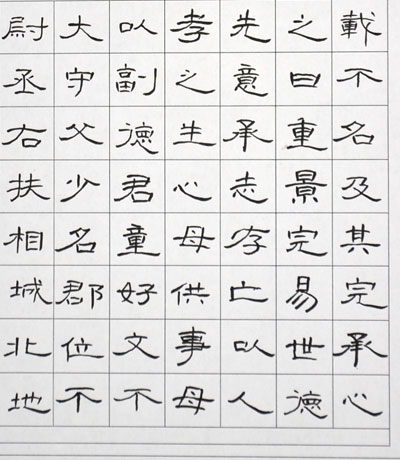 載不名及其完承心
之曰重景完易世德
先意承志存亡以人
孝之生心母供事母
以副德君童好文不
大守父少名郡位不
尉丞右扶相城北地